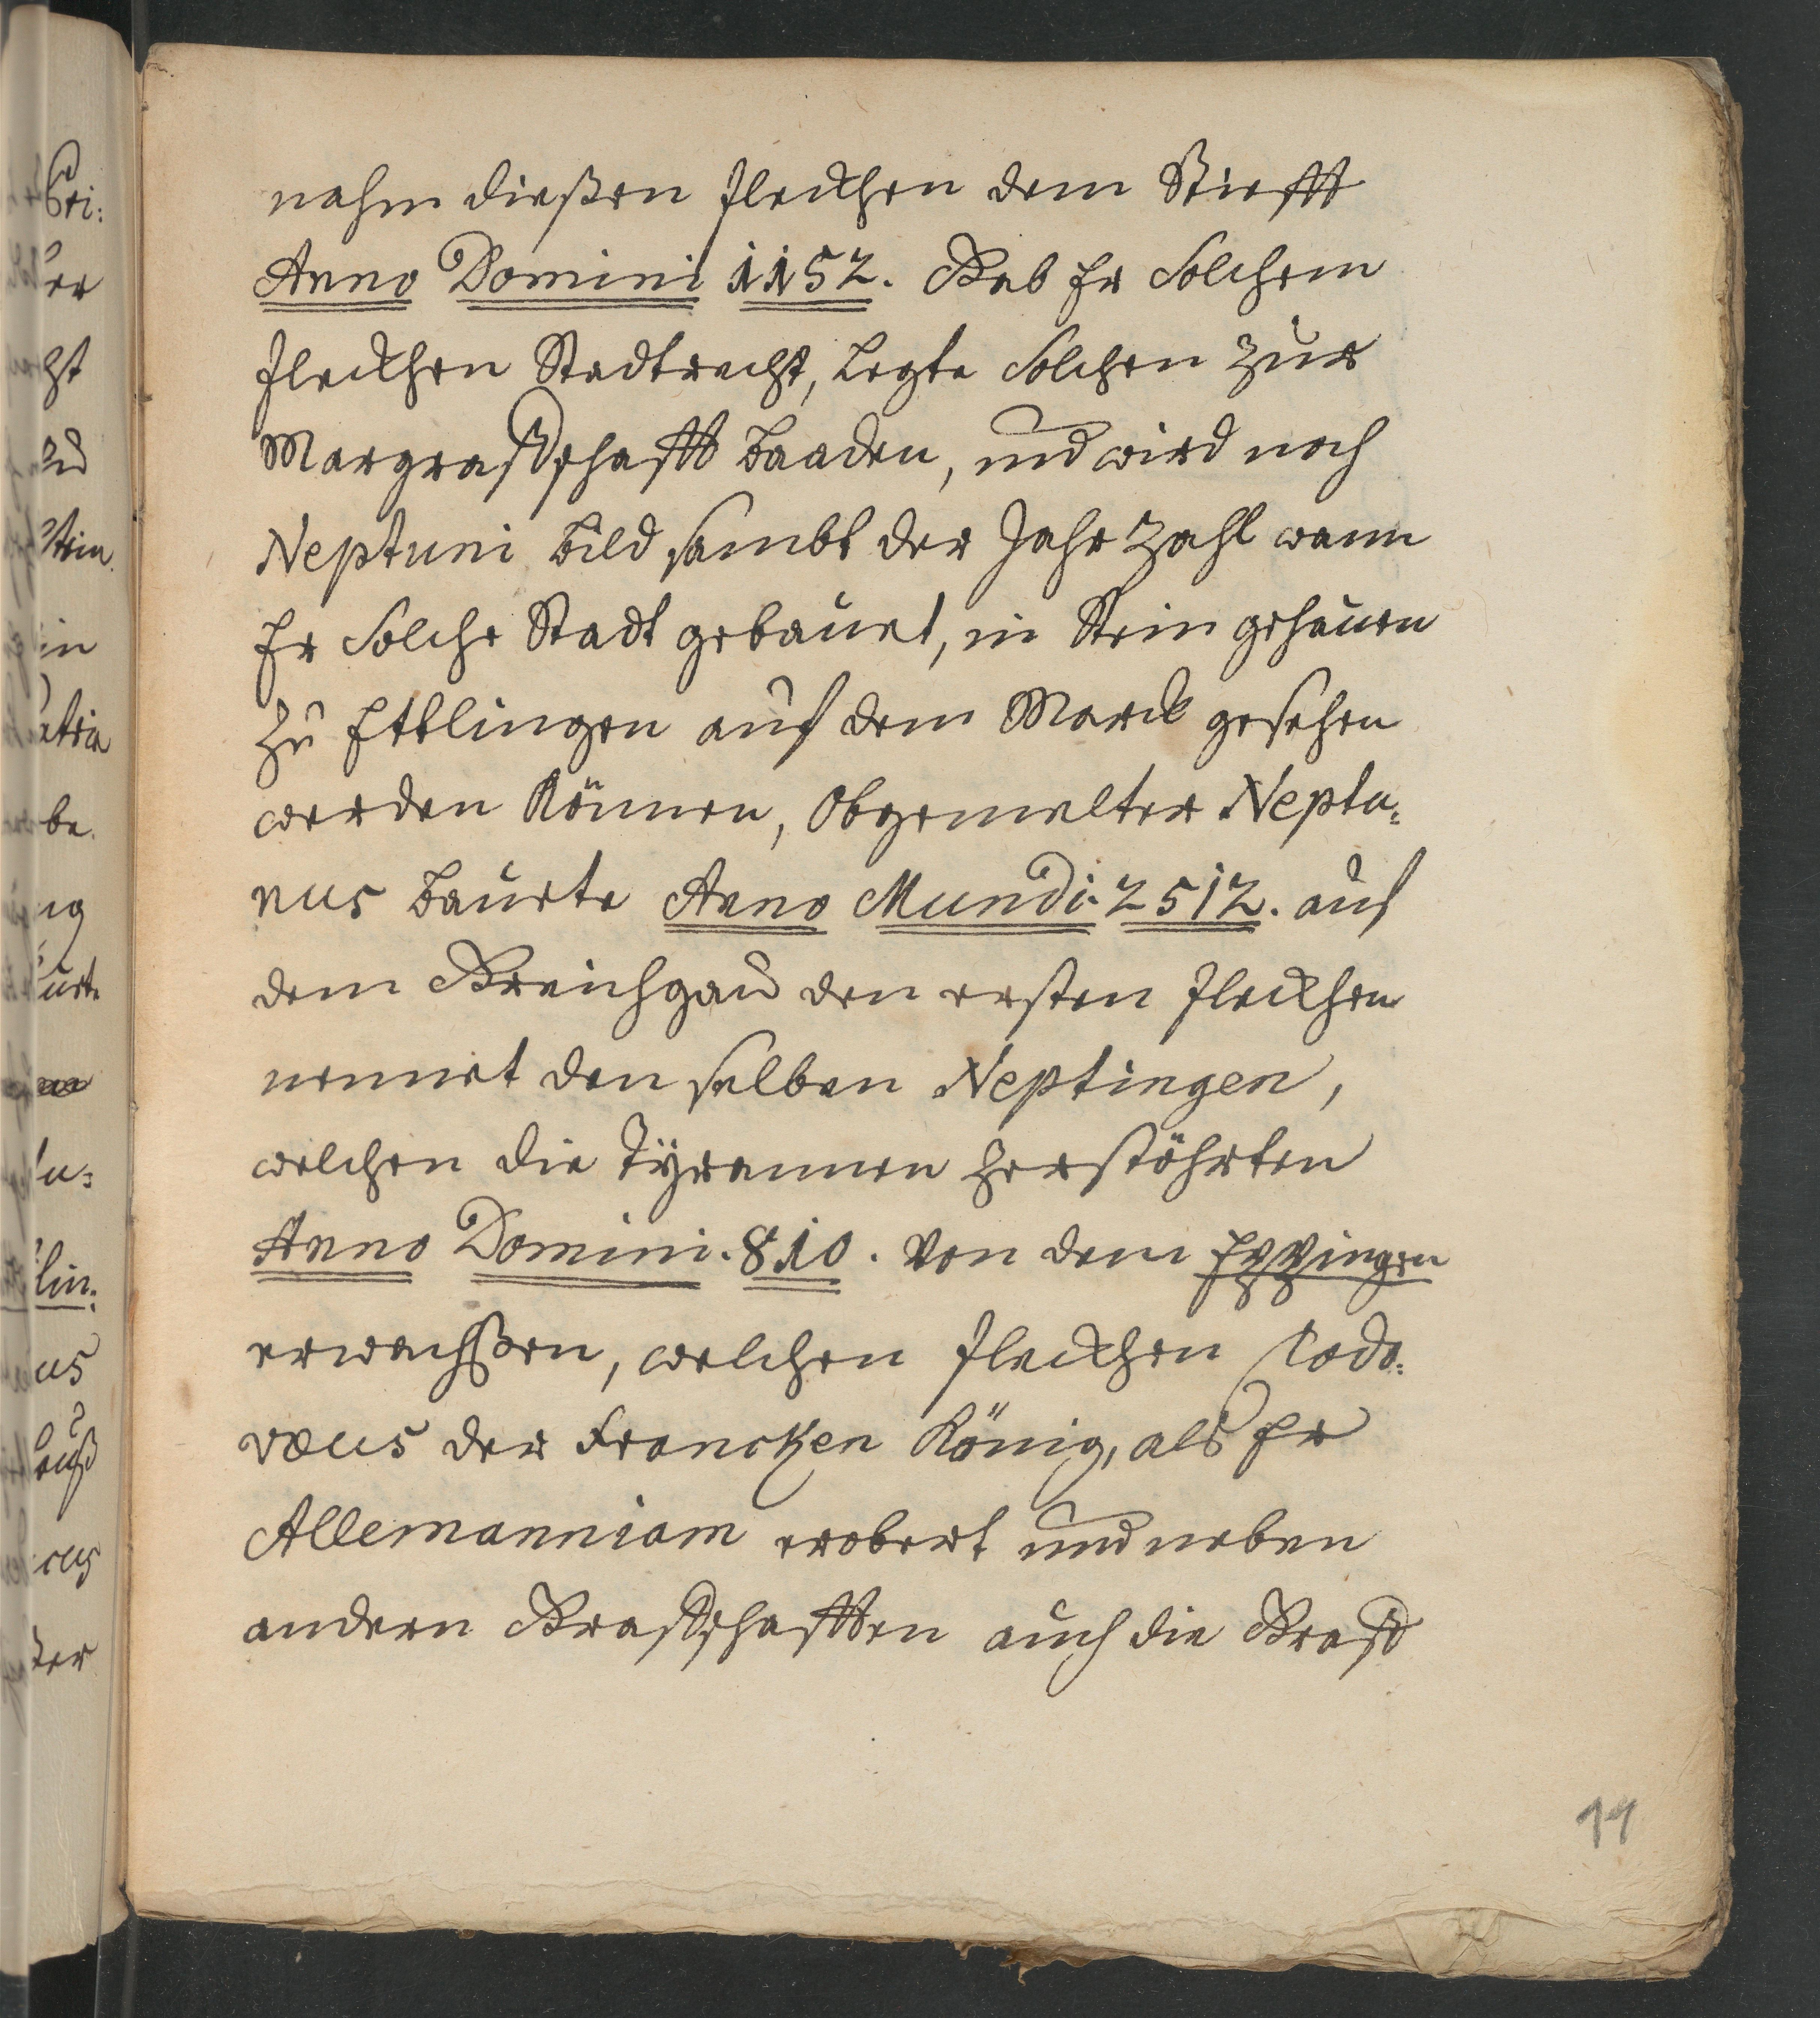 nahm dießen fleckhen dem Stiefft
Anno Domini 1152. Gab Er Solchem
fleckhen Stadtrecht, Legte Solchen zur
Margraffschafft Baaden, und wird noch
Neptuni Bild sambt der Jahr Zahl wann
Er Solche Stadt gebauet, in Stein gehauen
zu Ettlingen auf dem Marck gesehen
werden Können, Obgemelter Neptu=
nus Bauete Anno Mundi. 2512. auf
dem Greichgau den ersten fleckhen
nennet den selben Neptingen,
welchen die Tÿrannen zerstöhrten
Anno Domini. 810. Von dem Eppingen
erwachßen, welchen fleckhen Codo=
væus der Francken König, als Er
Allemanniam erobert und neben
andern Graffschafften auch die Graff
19